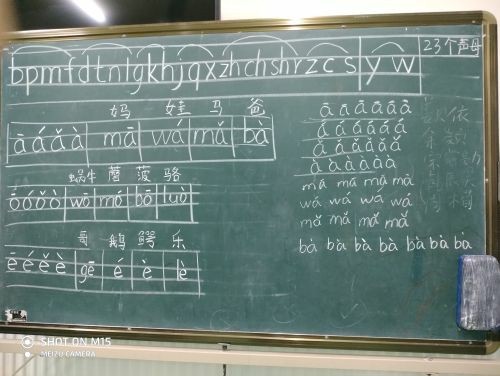 bpmfdtnlgkhjqxzhchshrzcsyw 23个声母
妈 娃 马 爸
ā á ǎ à mā wá mǎ bà
蜗牛 蘑 菠 骆
ō ó ǒ ò wō mó bō luò
哥 鹅 鳄 乐
ē é ě è gē é è lè
ā ā ā ā ā ā
á á á á á á
ǎ ǎ ǎ ǎ ǎ ǎ
à à à à à à
mā mā mā mā
wá wá wá wá
mǎ mǎ mǎ mǎ
bà bà bà bà bà bà bà
依
SHOT ON M15
MEIZU CAMERA